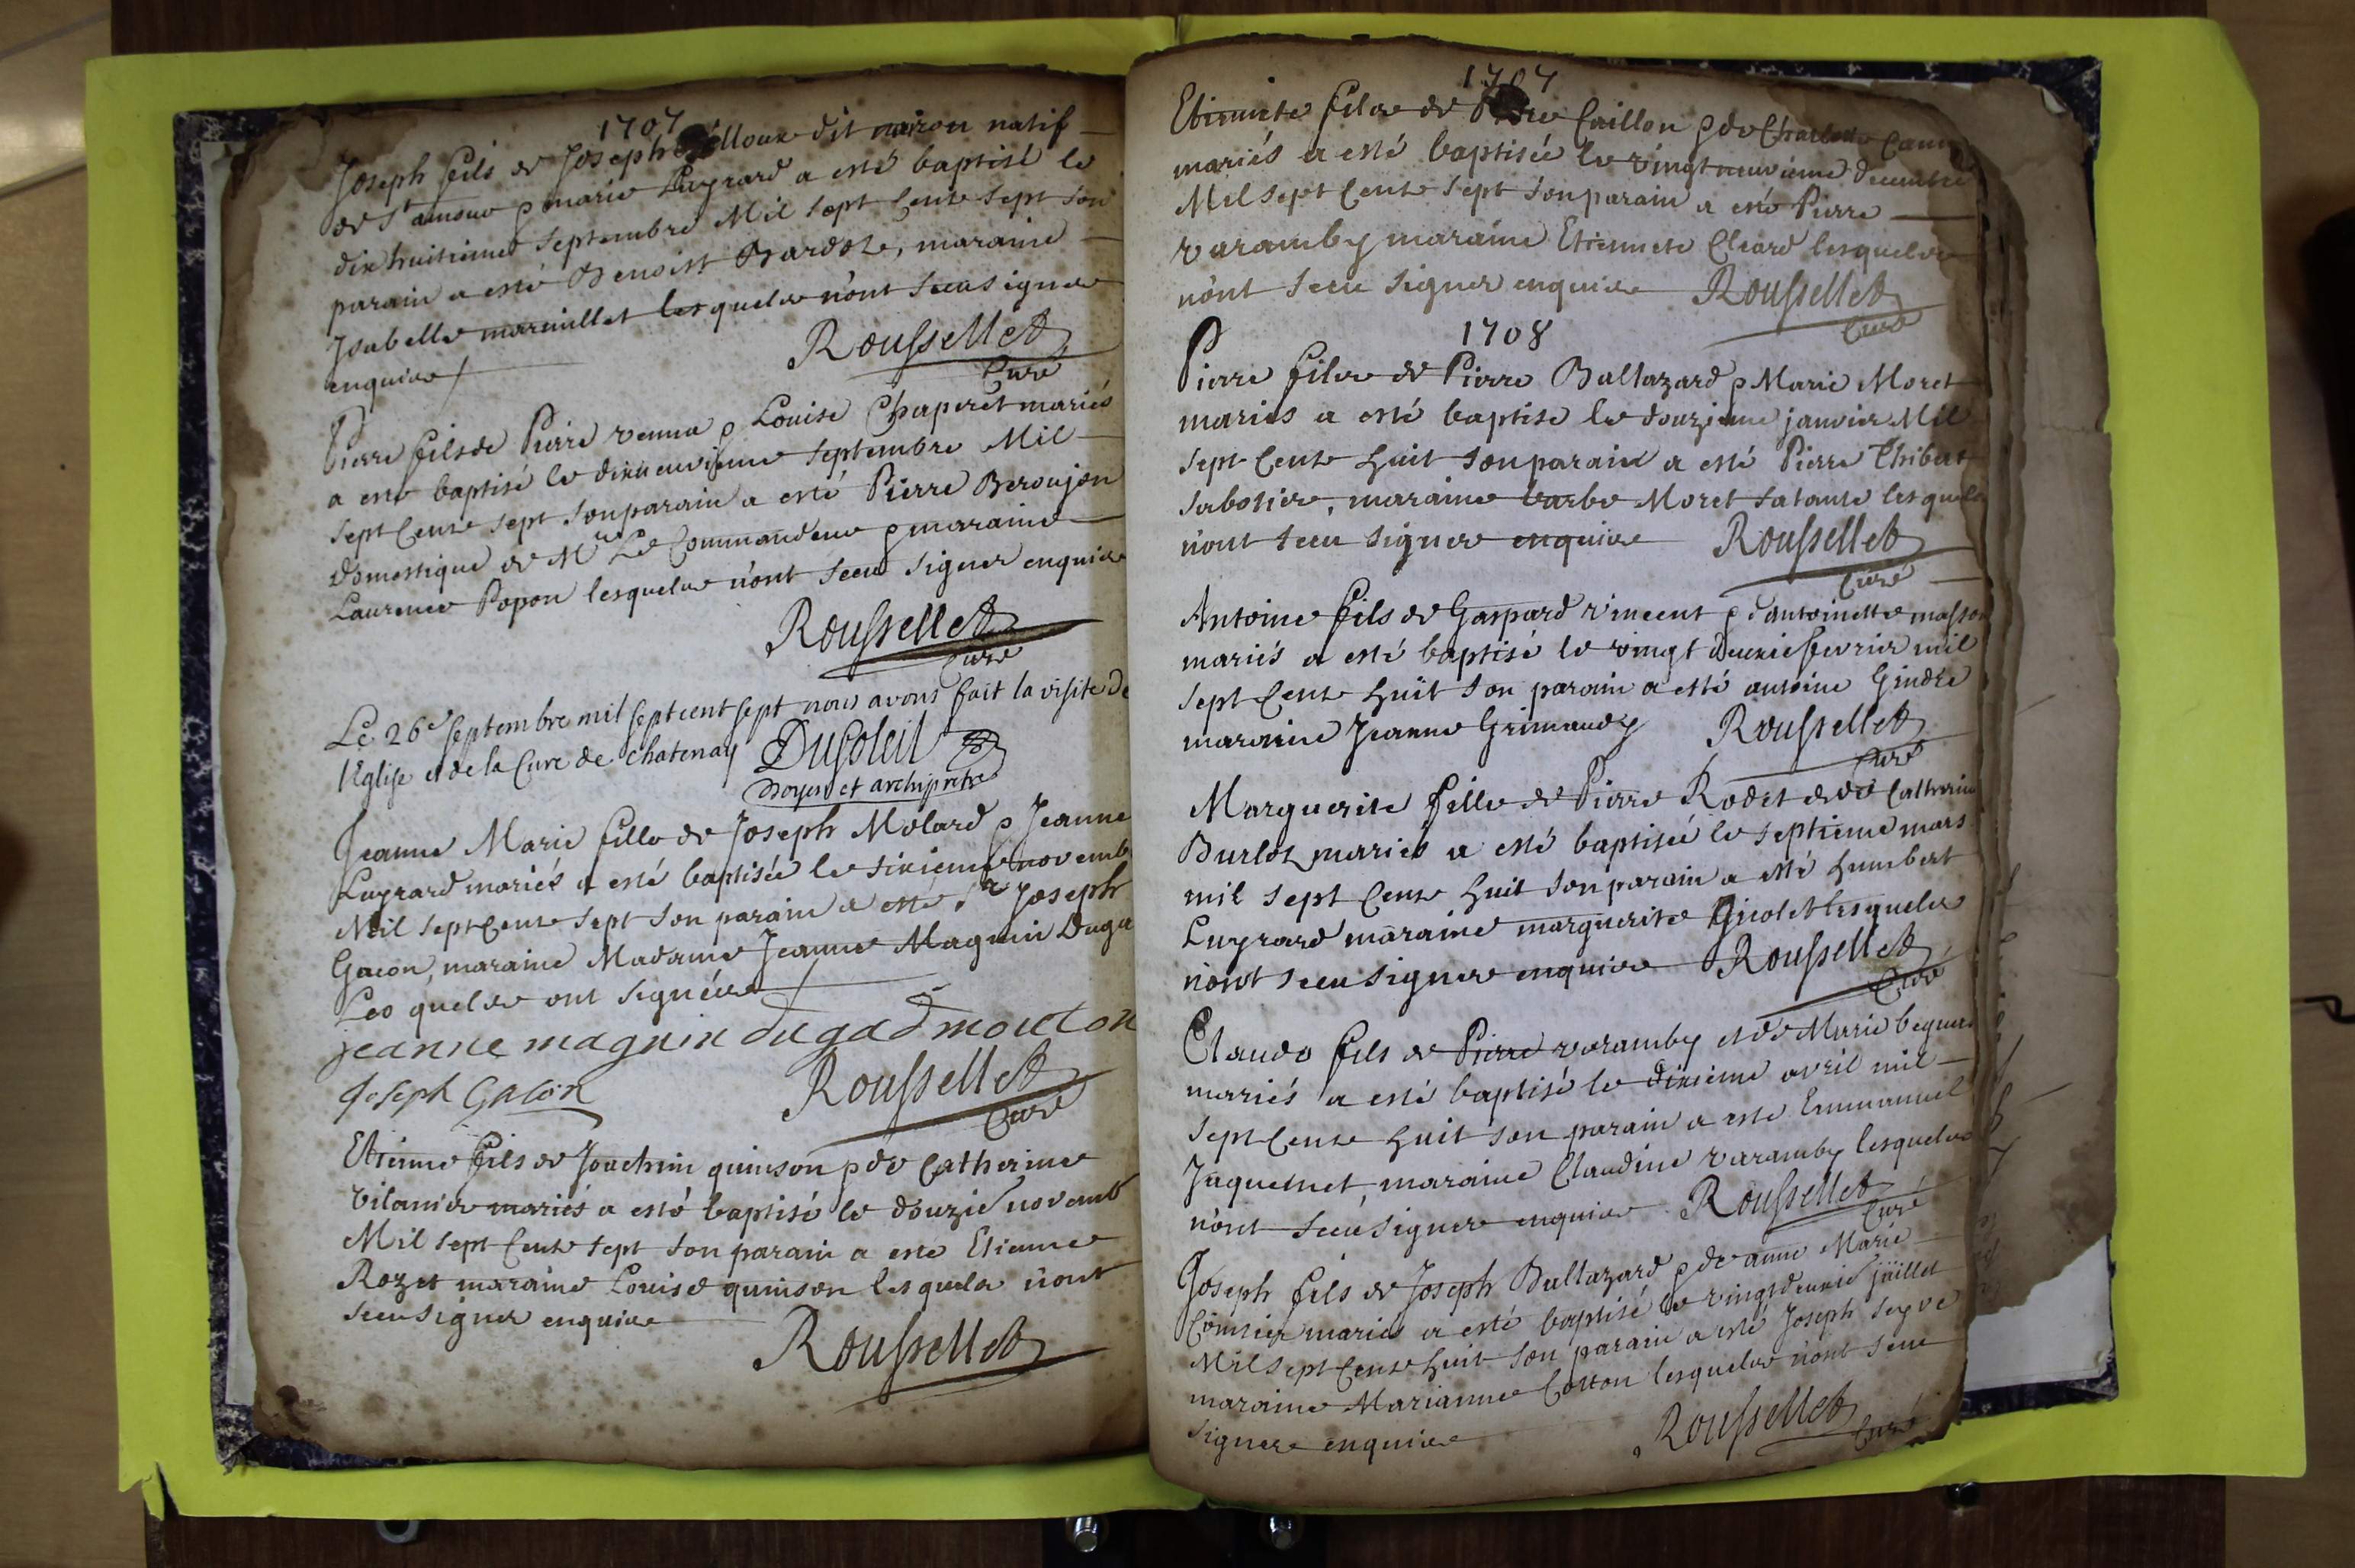 1707
Joseph fils de Joseph dit natif
de St amour & marie Luyrard a esté baptisé le
dix huitieme septembre Mil sept Cents sept son
parain a esté Benoist Bardot, maraine
Isabelle lesquels n'ont sceu signer
enquis
Roussellet
Curé
Pierre fils de Pierre & Louise Chaperet mariés
a esté baptisé le dixneuvieme septembre Mil
sept Cents sept son parain a esté Pierre Beroujon
domestique de Mr Le Commandeur & maraine
Laurence Popon lesquels n'ont sceu signer enquis
Roussellet
Curé
Le 26e septembre mil sept cent sept nous avons fait la visite de
l'Eglise et de la Cure de chatenay DuSoleil
doyen et archipretre
Jeanne Marie fille de Joseph Molard & Jeanne
Luyrard mariés a esté baptisée le sixieme novemb
Mil sept Cents sept son parain a esté Sr Joseph
Gacon, maraine Madame Jeanne Magnin Duga
Lesquels ont signés
jeanne magnin dugad mouton
joseph Gacon
Roussellet
Curé
Etienne fils de Joachim quinson & de Catherine
vilanier mariés a esté baptisé le douzie novemb
Mil sept Cents sept son parain a esté Etienne
Rozet maraine Louise quinson lesquels n'ont
sceu signer enquis
Roussellet
1707
Etiennete fille de Caillon & de
mariés a esté baptisée le vingt neuvieme decembre
Mil sept Cents sept son parain a esté Pierre
varamby maraine Etiennete Cleard lesquels
n'ont sceu signer enquis Roussellet
Curé
1708
Pierre fils de Pierre Baltazard & Marie Moret
mariés a esté baptisé le douzieme janvier Mil
sept Cents huit son parain a esté Pierre Thibert
sabotier, maraine barbe Moret sa tante lesquels
n'ont sceu signer enquis Roussellet
Curé
Antoine fils de Gaspard vincent & d'antoinette masson
mariés a esté baptisé le vingt deuxie fevrier mil
sept Cents huit son parain a esté antoine Gindre
maraine Jeanne Grimaud Roussellet
Curé
Marguerite fille de Pierre Rodet et de Catherin
Burlot mariés a esté baptisée le septieme mars
mil sept Cents huit son parain a esté humbert
Luyrard maraine marguerite lesquels
n'ont sceu signer enquis Roussellet
Curé
Claude fils de Pierre varamby et de Marie
mariés a esté baptisé le dixieme avril mil
sept Cents huit son parain a esté Emmanuel
Jaquemet, maraine Claudine varamby lesquels
n'ont sceu signer enquis Roussellet
Curé
Joseph fils de Joseph Baltazard & de anne Marie
mariés a esté baptisé le vingt deuxie juillet
Mil sept Cents huit son parain a esté Joseph seyve
maraine Marianne Cotton lesquels n'ont sceu
signer enquis Roussellet
Curé